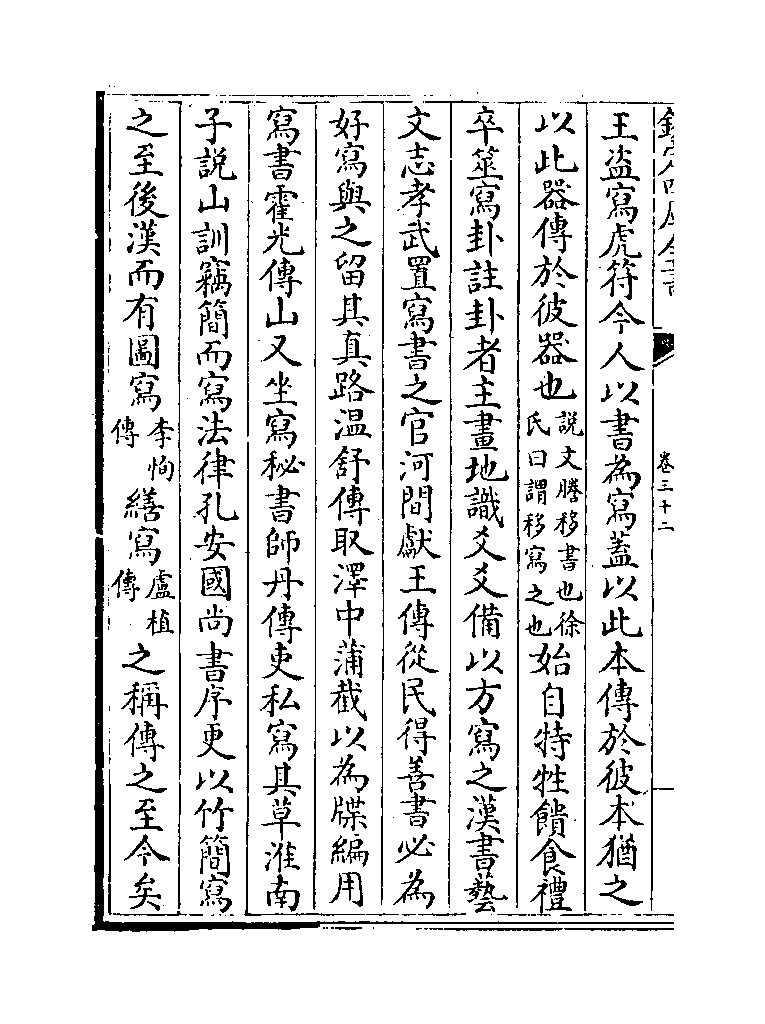 欽定四庫全書
卷三十二
王盜寫虎符今人以書為寫蓋以此本傳於彼本猶之
以此器傳於彼器也說文謄移書也徐氏曰謂移寫之也始自特牲饋食禮
卒筮寫卦註卦者主畫地識爻爻備以方寫之漢書藝
文志孝武置寫書之官河間獻王傳從民得善書必為
好寫與之留其真路温舒傳取澤中蒲截以為牒編用
寫書霍光傳山又坐寫秘書師丹傳吏私寫其草淮南
子説山訓竊簡而寫法律孔安國尚書序更以竹簡寫
之至後漢而有圖寫李恂傳繕寫盧植傳之稱傳之至今矣